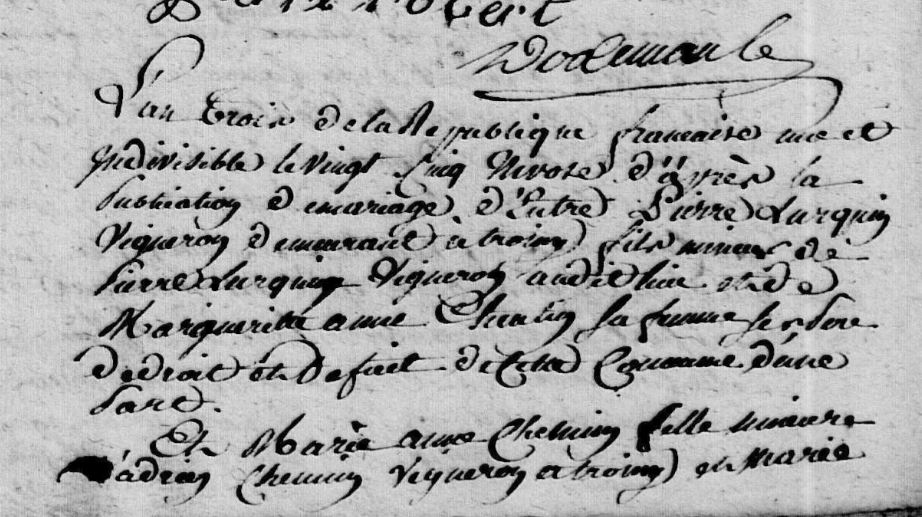 L'an trois de la Republique francaise une et
Indivisible le vingt cinq Nivose d'après la
publication de mariage d'Entre Pierre Lurquin
Vigneron demeurant a troissy fils mineur de
Pierre Lurquin Vigneron audit lieu et de
Marguerite anne sa femme ses pere
de droit et de fait de Cette Commune d'une
part.
Et Marie anne Chemin fille mineure
d'adrien Chemin Vigneron a troissy et Marie